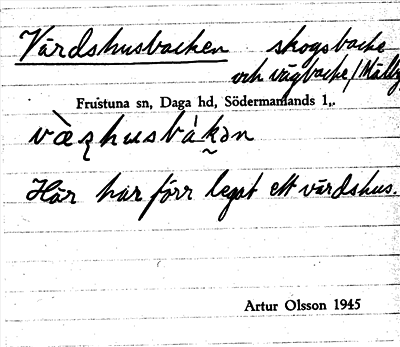 Värdshusbacken skogsbacke
och vägbacke/
Frustuna sn, Daga hd, Södermanlands l,.
Här har förr legat ett värdshus.
Artur Olsson 1945